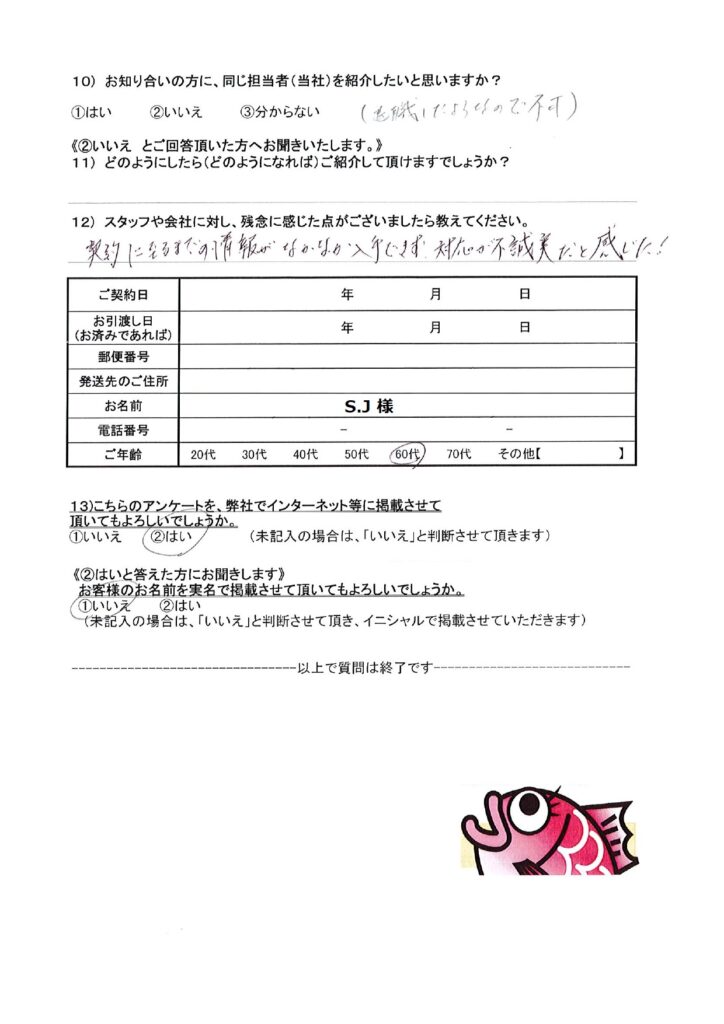 10) お知り合いの方に、同じ担当者(当社)を紹介したいと思いますか?
①はい ②いいえ ③分からない (退職したようなので不可)
《②いいえ とご回答頂いた方へお聞きいたします。》
11) どのようにしたら(どのようになれば)ご紹介して頂けますでしょうか?
12) スタッフや会社に対し、残念に感じた点がございましたら教えてください。
契約になるまでの情報がなかなか入手できず 対応が不誠実だと感じた!
ご契約日 年 月 日
お引渡し日 年 月 日
(お済みであれば)
郵便番号
発送先のご住所
お名前 S.J 様
電話番号 − −
ご年齢 20代 30代 40代 50代 60代 70代 その他【 】
13)こちらのアンケートを、弊社でインターネット等に掲載させて
頂いてもよろしいでしょうか。
①いいえ ②はい (未記入の場合は、「いいえ」と判断させて頂きます)
《②はいと答えた方にお聞きします》
お客様のお名前を実名で掲載させて頂いてもよろしいでしょうか。
①いいえ ②はい
(未記入の場合は、「いいえ」と判断させて頂き、イニシャルで掲載させていただきます)
--------------------------------以上で質問は終了です----------------------------